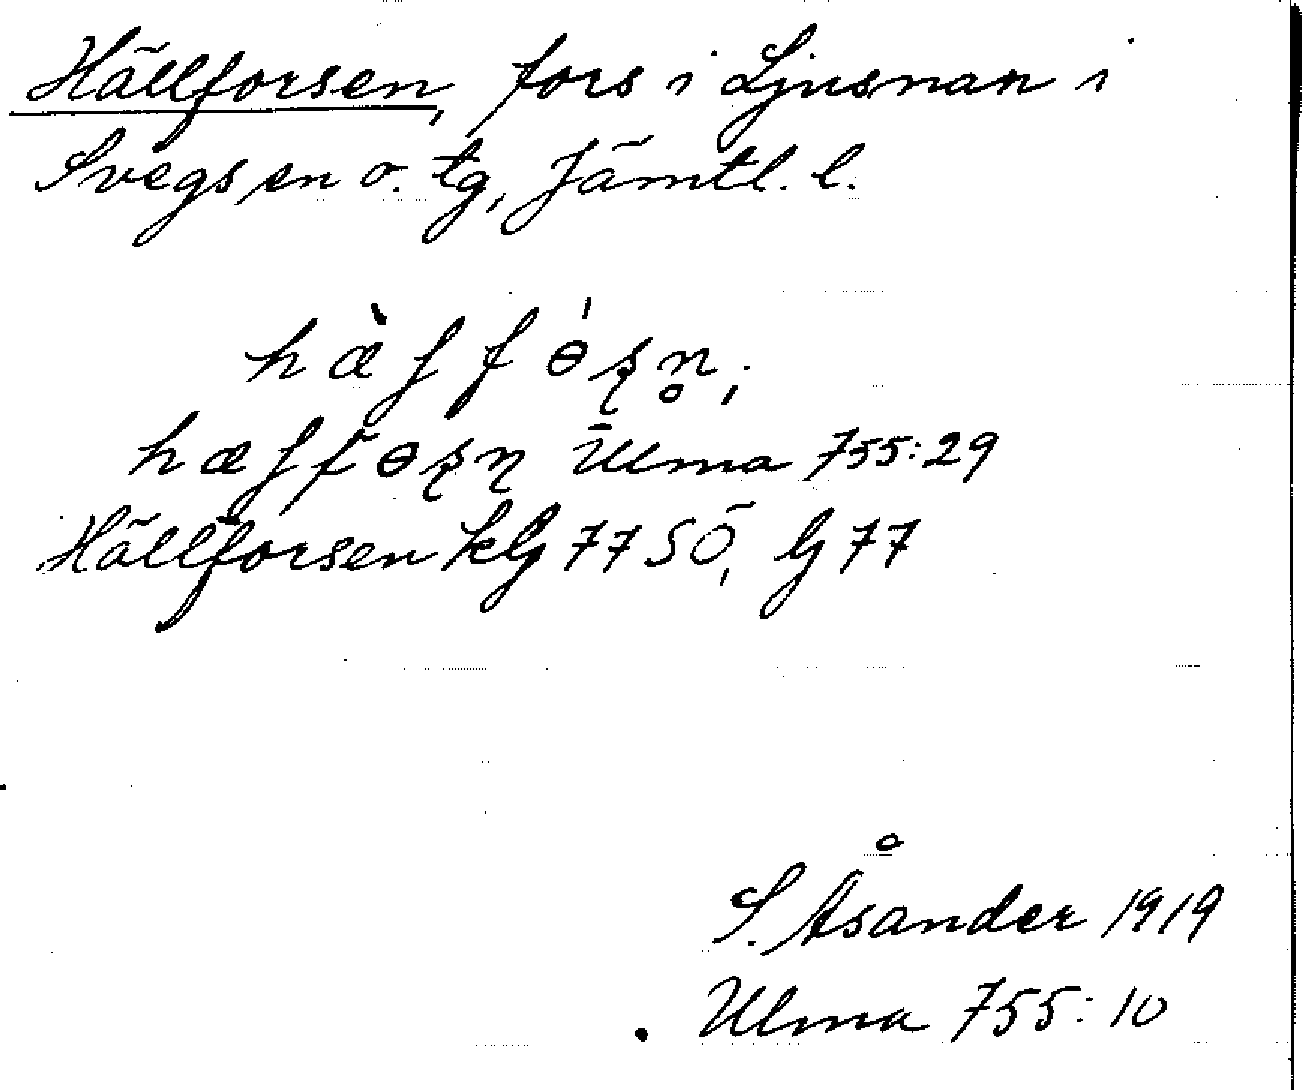 Hällforsen, fors i Ljusnan i
Svegs sn o. tg, Jämtl. l.
Ulma 755:29
Hällforsen klg 77 SÖ, lg 77
S. Åsander 1919
Ulma 755:10